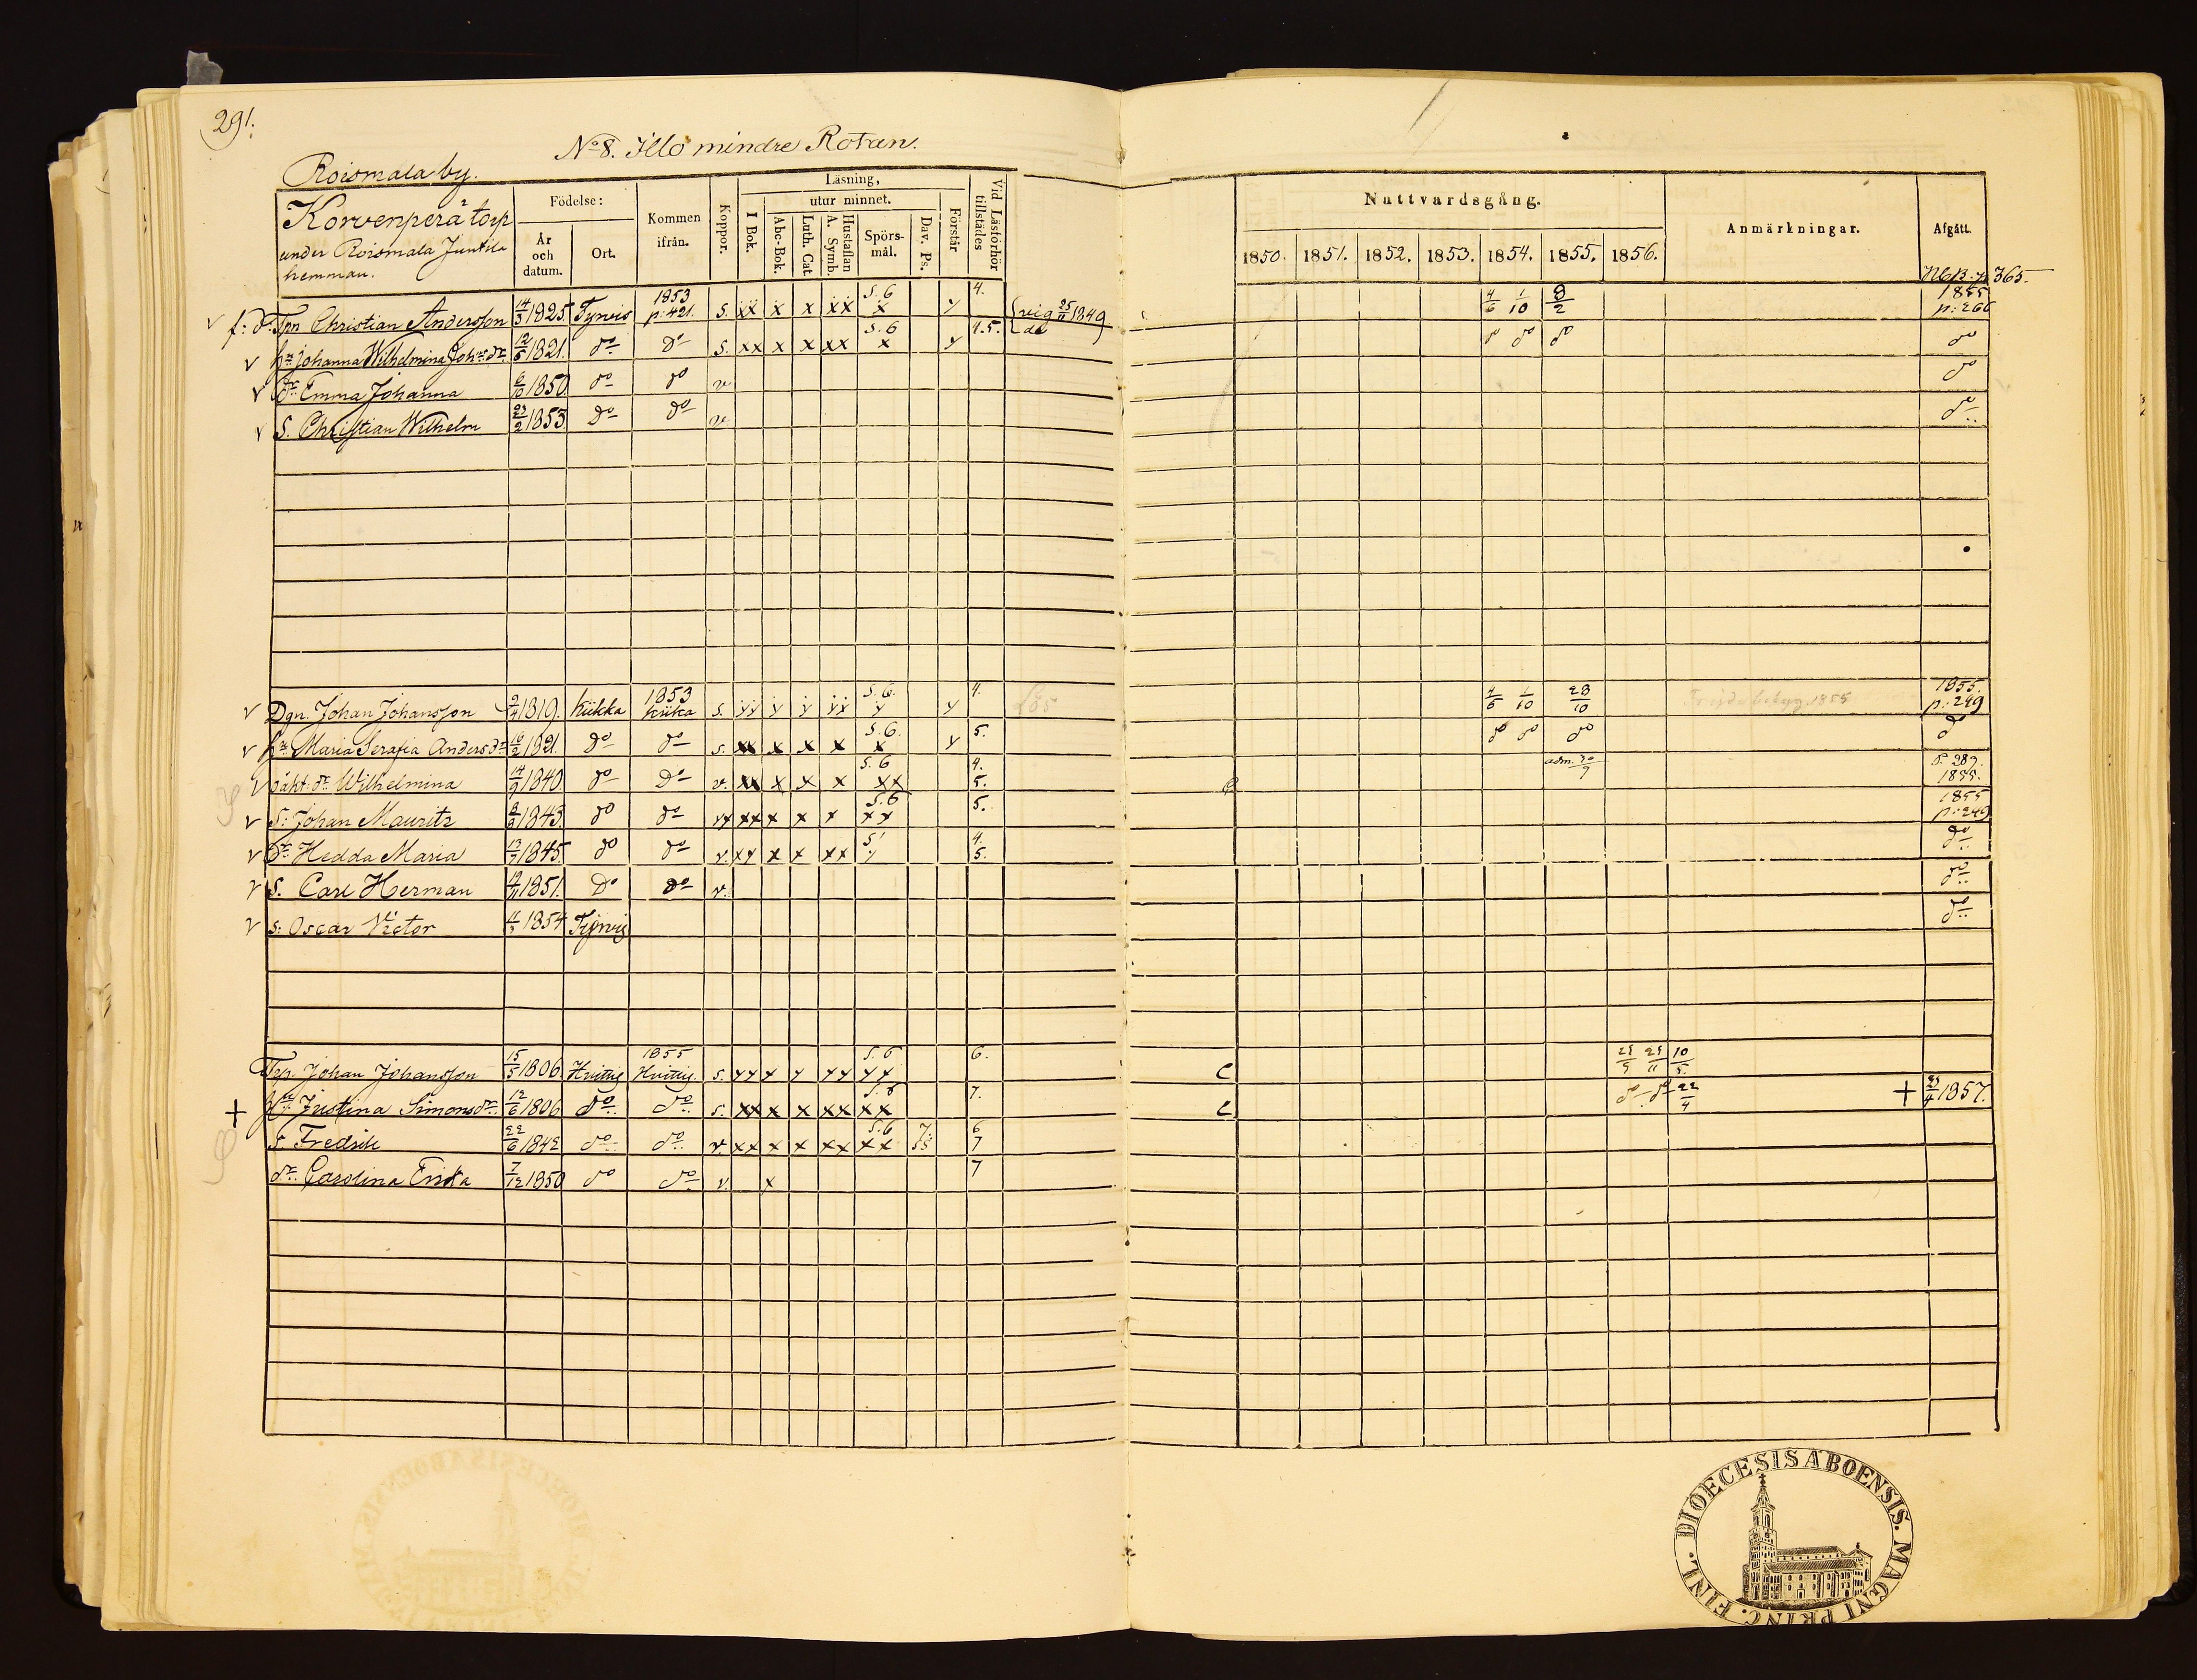 291.
No 8. Illo mindre Rotan.
Roismala by.
Korvenperä torp
under Roismala Juntila
hemman.
Födelse:
År och datum.
Ort.
Kommen ifrån.
Koppor.
Läsning,
utur minnet.
I Bok.
Abc-Bok.
Luth. Cat.
Hustaflan A. Symb.
Spörs-mål.
Dav. Ps.
Förstår
Vid Läsförhör tillstädes
Nattvardsgång.
1850. 1851. 1852. 1853. 1854. 1855. 1856.
Anmärkningar.
Afgått.
NB. p. 365.
f: d: Tpn Christian Andersson 14/3 1825 Tyrvis 1853 p: 421. S. xx x x xx S.6 x y 4. vig 25/11 1849 4/6 1/10 8/2 1855 p: 266
hu Johanna Wilhelmina Johsdr 12/5 1821. do Do S. xx x x xx S.6 x y 4.5. do do do do do
dr Emma Johanna 6/10 1850 do do v do
S. Christian Wilhelm 23/2 1853 Do do v. do
Dgn. Johan Johansson 9/4 1819. Kiikka 1853 Kiikka S. yy y y yy S.6. y y 4. 4/6 1/10 28/10 1855. p: 249
hu Maria Serafia Andersdr 16/2 1821. Do do S. xx x x x S.6. x y 5. do do do do
oäkt: dr Wilhelmina 14/9 1840. do Do v. xx x x x S.6 xx 4. 5. adm. 30/9 p. 289. 1855.
S: Johan Mauritz 8/9 1843. do do xx x x x S.6 xx 5. 1855 p: 249
dr Hedda Maria 13/7 1845. do do v. xx x x xx S. 4. 5. do
S. Carl Herman 19/11 1851. Do do v. do
S: Oscar Victor 1854 Tyrvis do
Trp. Johan Johansson 15/5 1806. Hvittis 1855 Hvittis. S. yy y y yy S.6 yy 6. 10/5. C
hu Justina Simonsdr 12/6 1806 do do S. xx x x xx S.6 xx 7. C do do 22/4 + 1857.
S. Fredrik 22/6 1842 do do v xx x x xx S.6 xx 6 7
dr Carolina Erika 7/12 1850 do do v. x 7
DIOECESIS ABOENSIS. MAGNI PRINC. FINL.